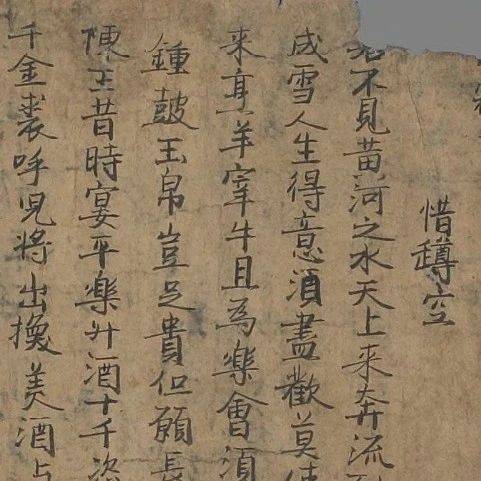 惜罇空
君不見黃河之水天上來奔流
成雪人生得意酒盡歡莫使
来烹羊宰牛且為樂會須
鍾皷玉帛豈足貴但願長
陳王昔時宴平樂㪷酒十千恣
千金裘呼兒將出換美酒与